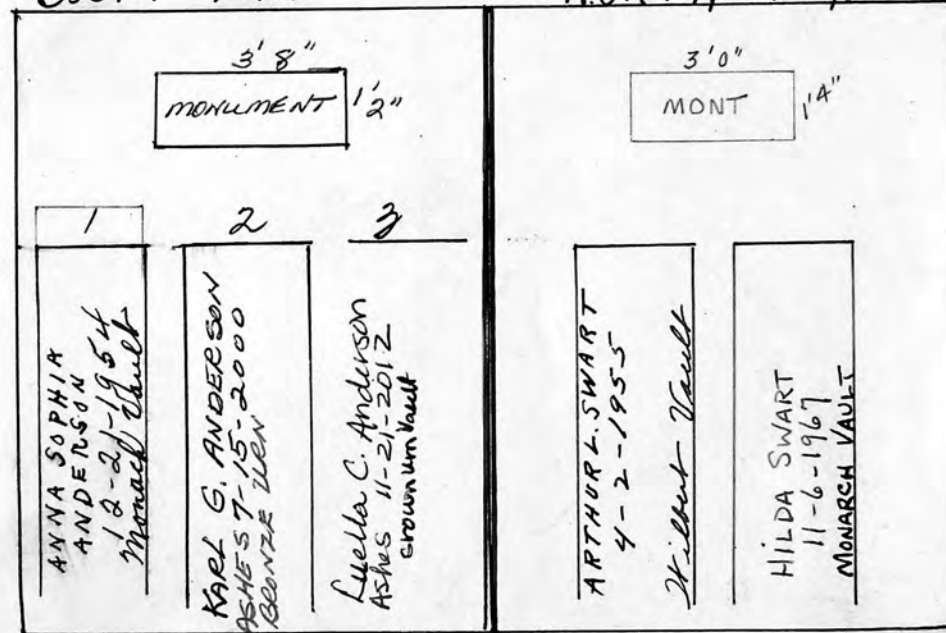 3'8"
MONUMENT
1'2"
1
2
3
ANNA SOPHIA
ANDERSON
12-21-1954
Monach Vault
KARL G. ANDERSON
ASHES 7-15-2000
BRONZE URN
Luella C. Anderson
Ashes 11-21-2012
crown vault
3'0"
MONT
1'4"
ARTHUR L. SWART
4-2-1955
Wilbert Vault
HILDA SWART
11-6-1967
MONARCH VAULT